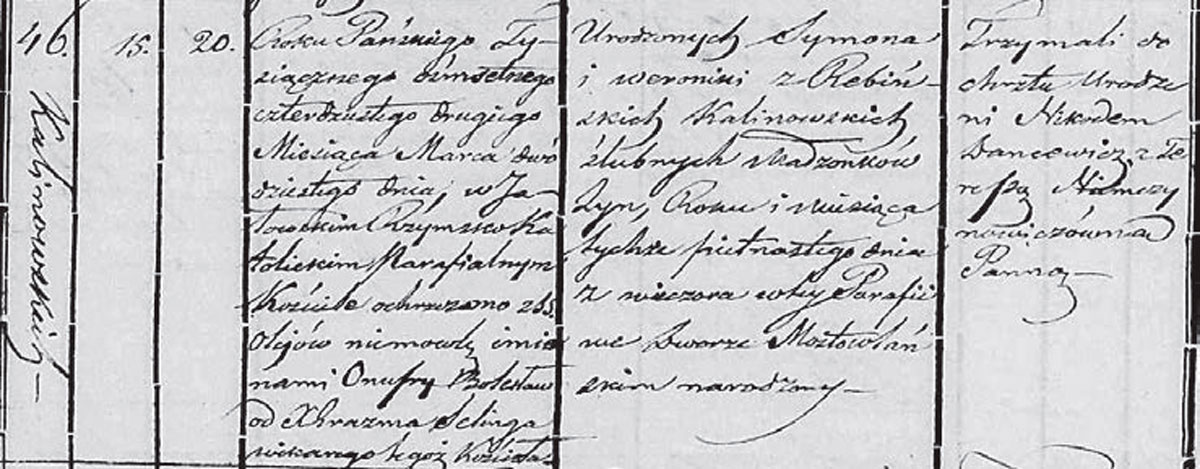 46.
Kalinowskich
15.
20.
Roku Pańskiego Ty-
siącznego ósmsetnego
czterdziestego drugiego
Miesiąca Marca dwó
dziestego dnia, w Ja-
łowskim Rzymsko Ka
tolickim Parafialnym
Kościele ochrzczono z SS.
Olejów niemowlę imio
nami Onufry Bolesław
od X. Erazma Selinga
wikarego tegoż Kościoła
Urodzonych Symona
i Weroniki z Rębiń-
skich Kalinowskich
ślubnych Małżonków
Syn, Roku i Miesiąca
tychże piętnastego dnia
z wieczora w tey Parafii
we Dworze Mostowlań
skim narodzony
Trzymali do
chrztu Urodze
ni Nikodem
Dancewicz z Te
ressą Niemczy
nowiczówną
Panną